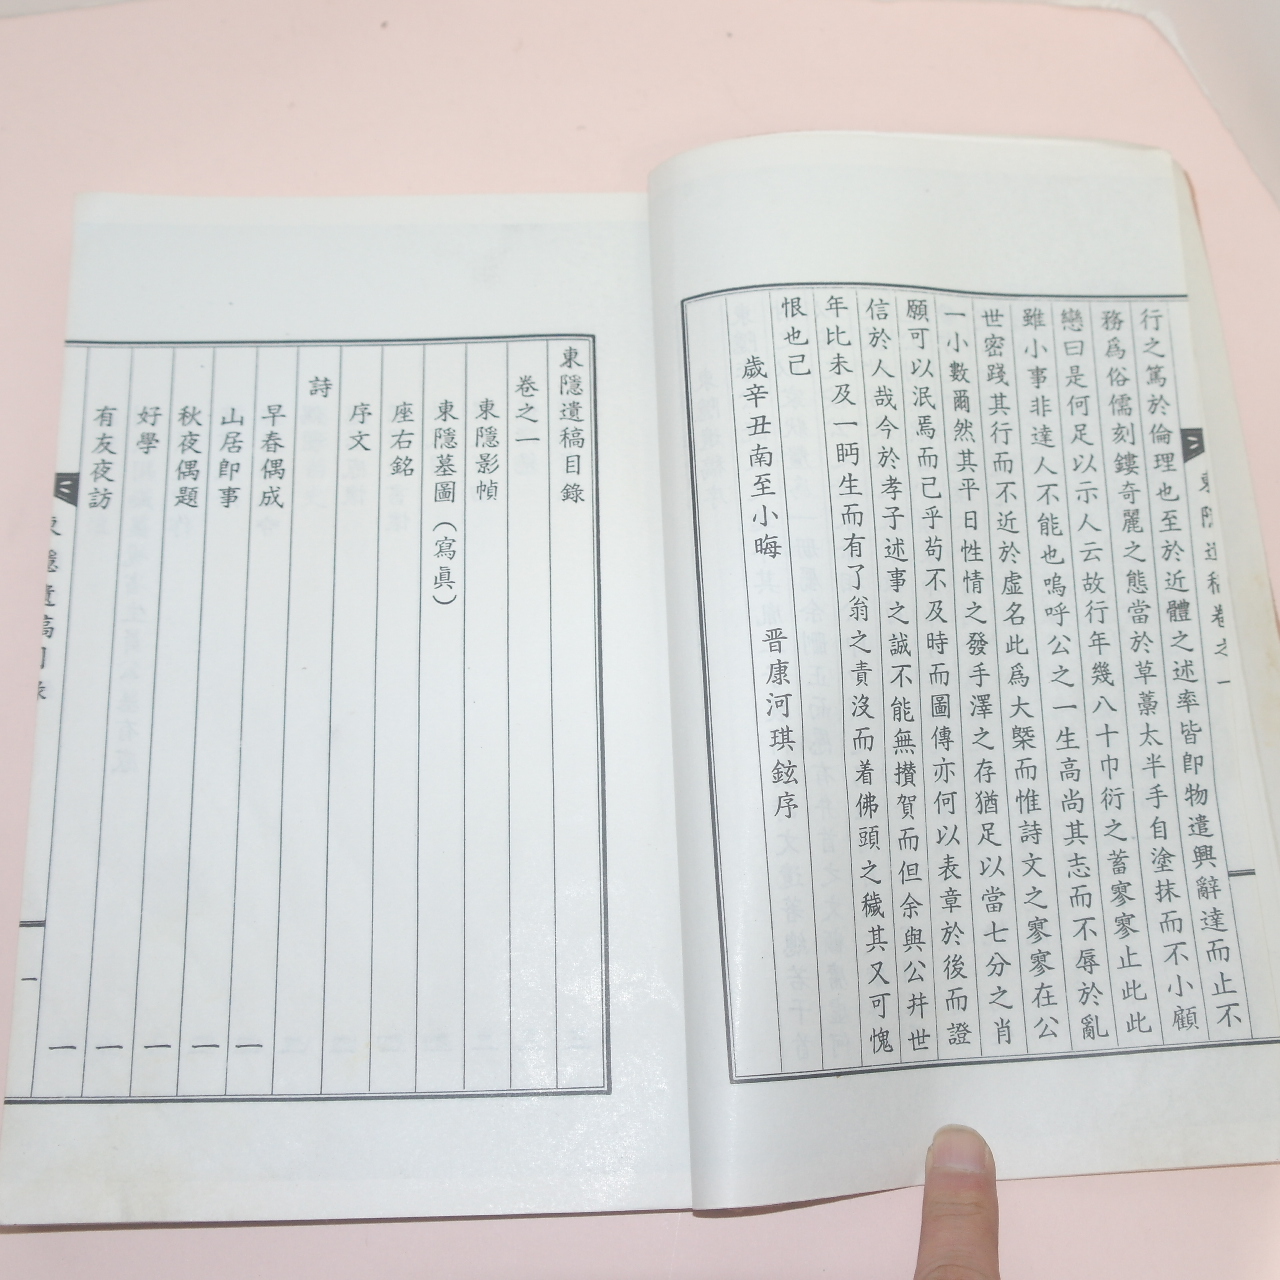 行之篤於倫理也至於近體之述率皆卽物遣興辭達而止不
務爲俗儒刻鏤奇麗之態當於草藁太半手自塗抹而不小顧
戀曰是何足以示人云故行年幾八十巾衍之蓄寥寥止此此
雖小事非達人不能也嗚呼公之一生高尚其志而不辱於亂
世密踐其行而不近於虛名此爲大槩而惟詩文之寥寥在公
一小數爾然其平日性情之發手澤之存猶足以當七分之肖
願可以泯焉而已乎苟不及時而圖傳亦何以表章於後而證
信於人哉今於孝子述事之誠不能無攢賀而但余與公幷世
年比未及一眄生而有了翁之責沒而着佛頭之穢其又可愧
恨也已
歲辛丑南至小晦 晋康河琪鉉序
東隱遺稿卷之一
東隱遺稿目錄
卷之一
東隱影幀
東隱墓圖(寫眞)
座右銘
序文
詩
早春偶成 一
山居卽事 一
秋夜偶題 一
好學 一
有友夜訪 一
東隱遺稿目錄 一